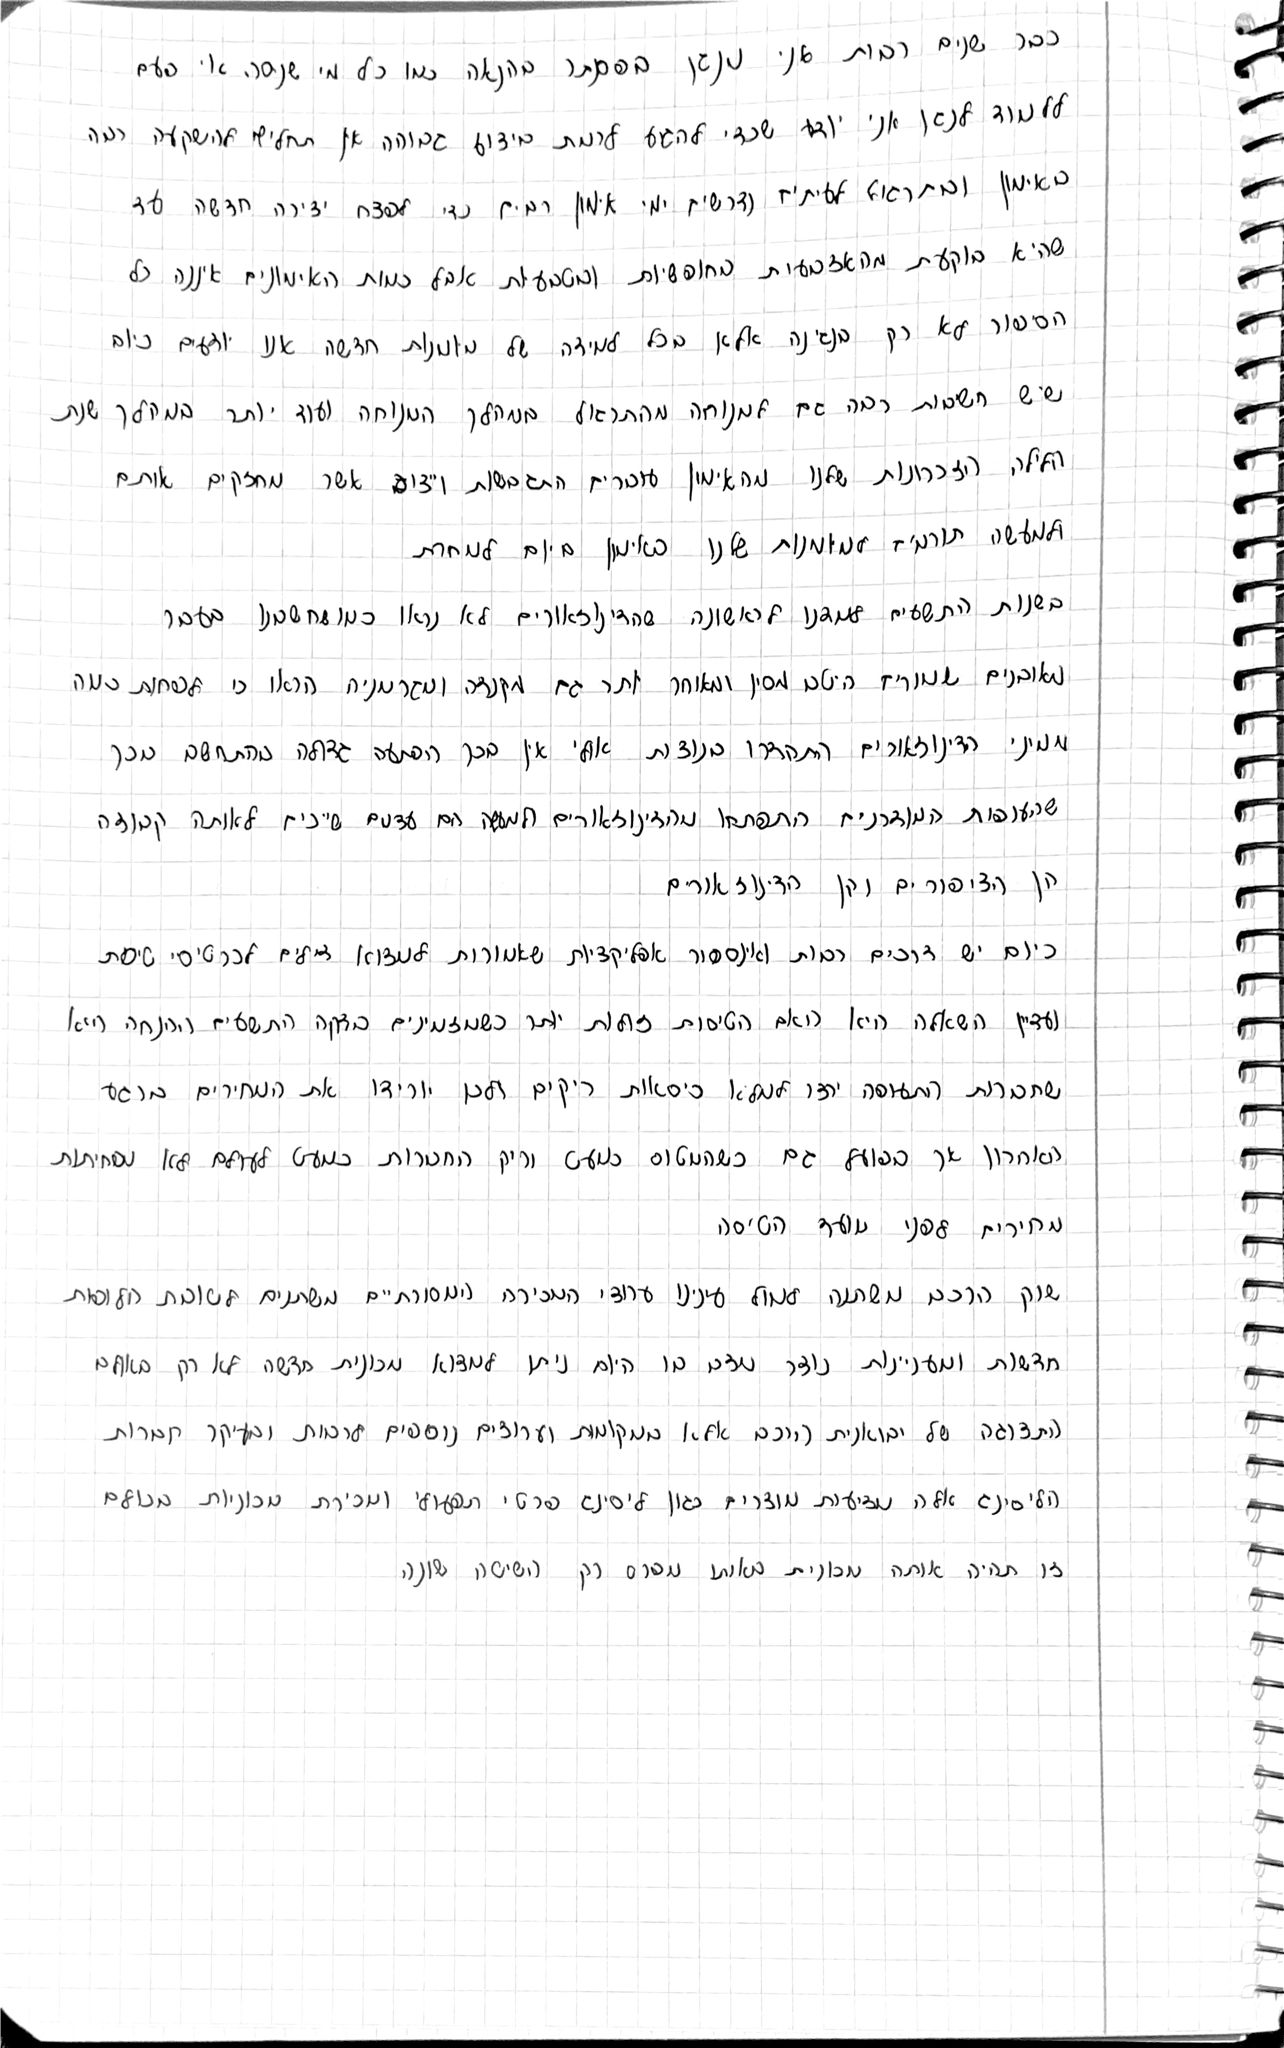 כבר שנים רבות אני מנגן בפסנתר בהנאה כמו כל מי שניסה אי פעם
ללמוד לנגן אני יודע שכדי להגיע לרמת ביצוע גבוהה אין תחליף להשקעה רבה
באימון ובתרגול לעיתים נדרשים ימי אימון רבים כדי לפצח יצירה חדשה עד
שהיא בוקעת מהאצבעות בחופשיות ובטבעיות אבל כמות האימונים איננה כל
הסיפור לא רק בנגינה אלא בכל למידה של מיומנות חדשה אנו יודעים כיום
שיש חשיבות רבה גם למנוחה מהתרגול במהלך המנוחה ועוד יותר במהלך שנת
הלילה הזכרונות שלנו מהאימון עוברים התגבשות וייצוב אשר מחזקים אותם
ולמעשה תורמים למיומנות שלנו באימון ביום למחרת
בשנות התשעים למדנו לראשונה שהדינוזאורים לא נראו כמו שחשבנו בעבר
מאובנים שמורים היטב מסין ומאוחר יותר גם מקנדה ומגרמניה הראו כי לפחות כמה
ממיני הדינוזאורים התהדרו בנוצות אולי אין בכך הפתעה גדולה בהתחשב בכך
שהעופות המודרנים התפתחו מהדינוזאורים ולמעשה הם עצמם שייכים לאותה קבוצה
הן הציפורים והן הדינוזאורים
כיום יש דרכים רבות ואינספור אפליקציות שאמורות למצוא דילים לכרטיסי טיסה
ועדיין השאלה היא האם הטיסות זולות יותר כשמזמינים בדקה התשעים ההנחה היא
שחברות התעופה ירצו למלא כיסאות ריקים ולכן יורידו את המחירים ברגע
האחרון אך בפועל גם כשהמטוס כמעט וריק החברות כמעט לעולם לא מפחיתות
מחירים לפני מועד הטיסה
שוק הרכב משתנה למול עינינו ערוצי המכירה המסורתיים משתנים לטובת חלופות
חדשות ומעניינות נוצר מצב בו היום ניתן למצוא מכונית חדשה לא רק באולם
התצוגה של יבואנית הרכב אלא במקומות וערוצים נוספים לרבות ובעיקר חברות
הליסינג אלה מציעות מוצרים כגון ליסינג פרטי תפעולי ומכירת מכוניות מכולם
זו תהיה אותה מכונית באותו מפרט רק השיטה שונה